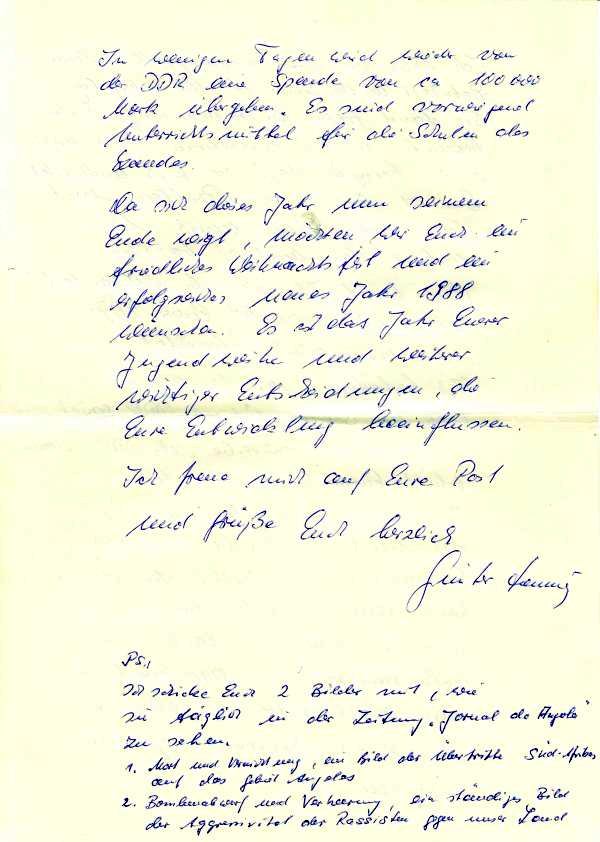 In wenigen Tagen wird wieder von
der DDR eine Spende von ca 100 000
Mark übergeben. Es sind vorwiegend
Unterrichtsmittel für die Schulen des
Landes.
Da sich dieses Jahr nun seinem
Ende neigt, möchten wir Euch ein
friedliches Weihnachtsfest und ein
erfolgreiches neues Jahr 1988
wünschen. Es ist das Jahr Eurer
Jugendweihe und weiterer
wichtiger Entscheidungen, die
Eure Entwicklung beeinflussen.
Ich freue mich auf Eure Post
und grüße Euch herzlich
Günter
PS.:
Ich schicke Euch 2 Bilder mit, wie
sie täglich in der Zeitung "Jornal de Angola"
zu sehen.
1. Mord und Vernichtung, ein Bild der Übertritte Süd-Afrikas
auf das Gebiet Angolas
2. Bombenabwurf und Verheerung, ein ständiges Bild
der Aggressivität der Rassisten gegen unser Land